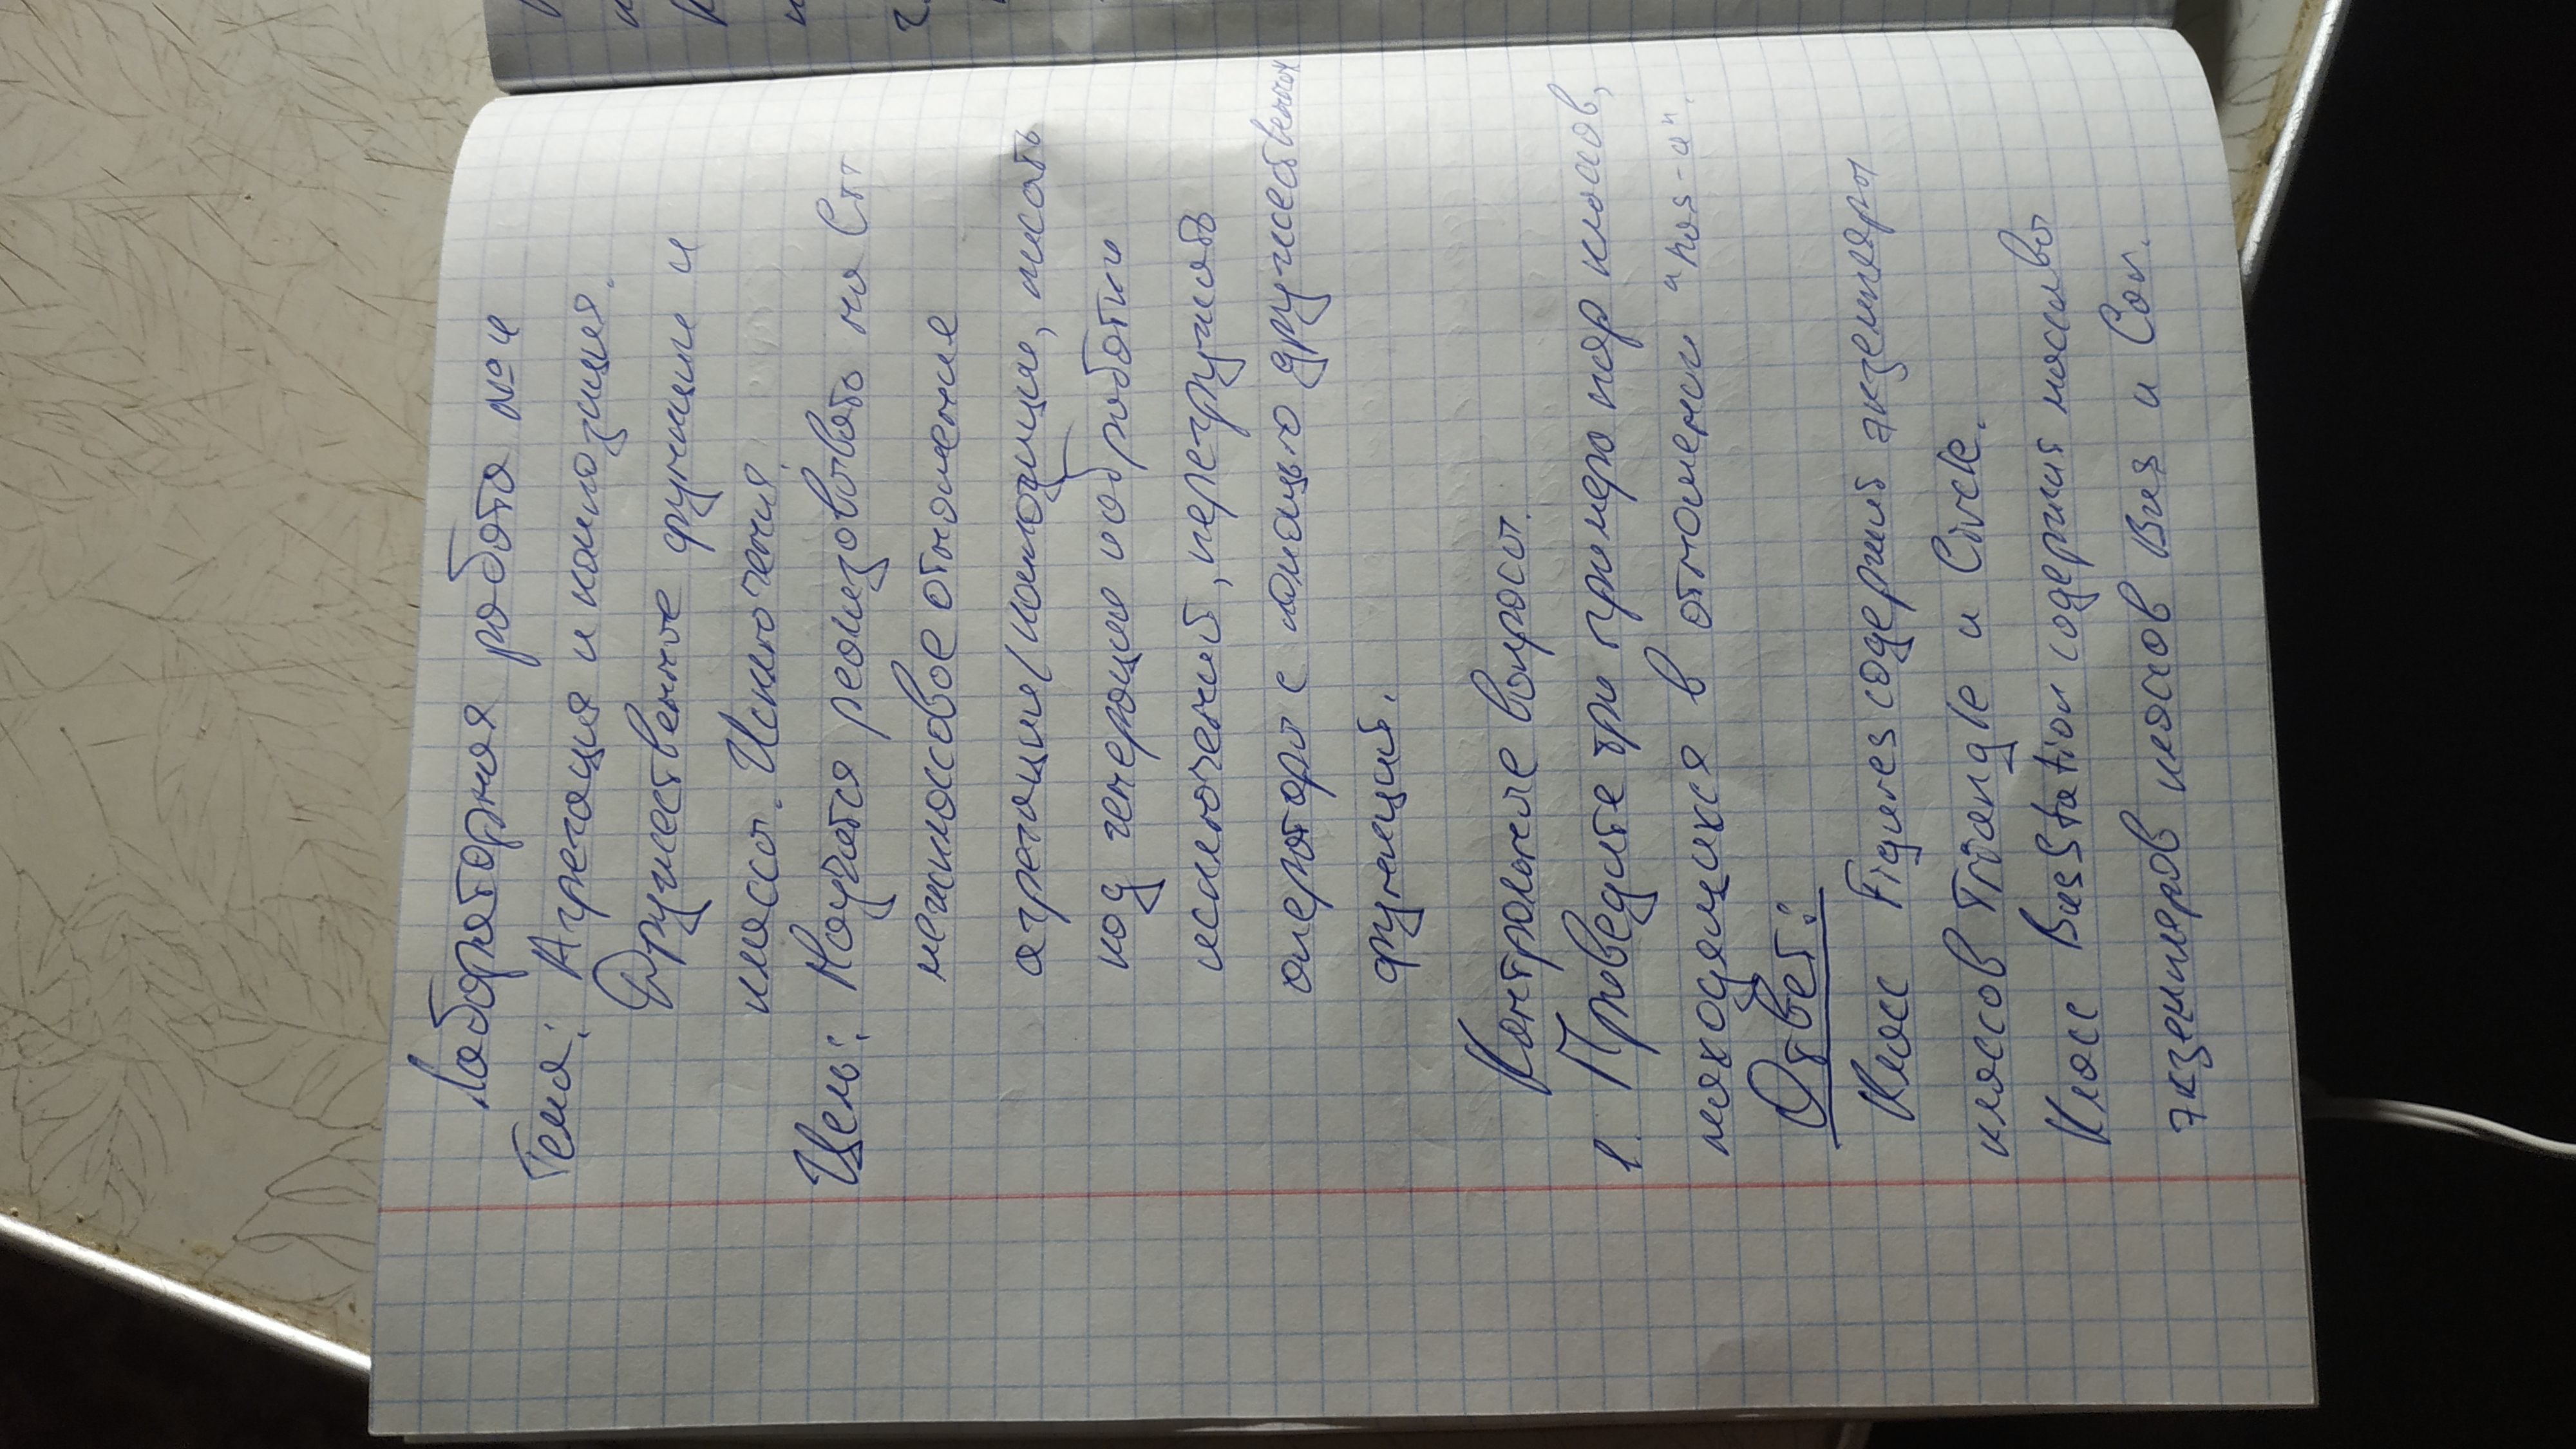 Лабораторная работа №4
Тема: Агрегация и композиция.
Дружественные функции и
классы. Исключения.
Цель: Научится реализовывать на С++
межклассовое отношение
агрегации/композиции, писать
код генерации и обработки
исключений, перегружать
операторы с помощью дружественных
функций.
Контрольные вопросы.
1. Приведите три примера пар классов,
находящихся в отношении "has-a".
Ответ:
Класс Figures содержит экземпляры
классов Triangle и Circle.
Класс BusStation содержит массивы
экземпляров классов Bus и Car.